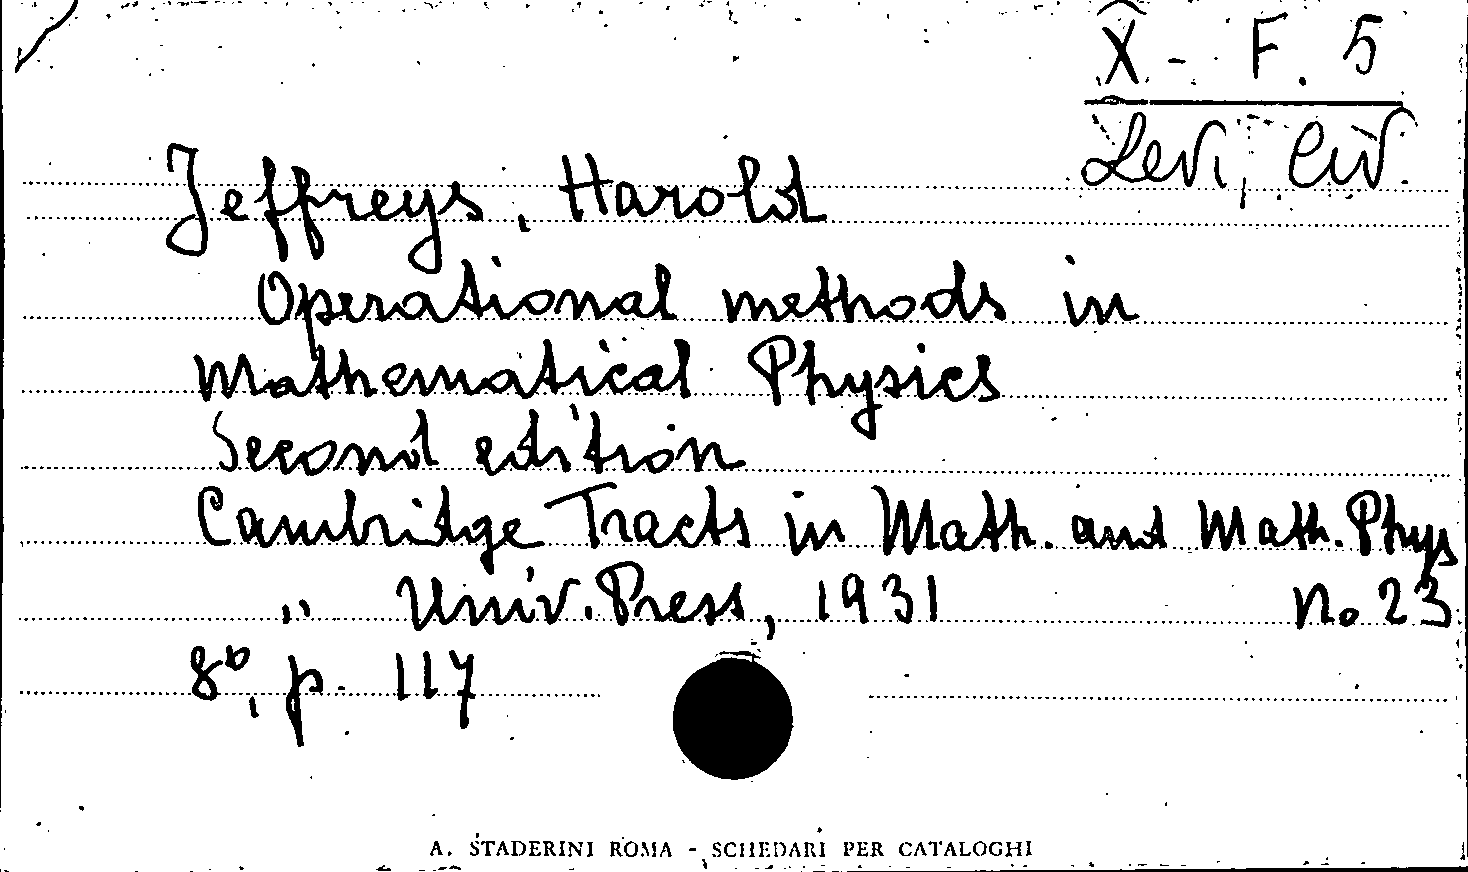 X - F. 5
Levi, Civ.
Jeffreys, Harold
Operational methods in
Mathematical Physics
Second edition
Cambridge Tracts in Math. and Math. Phys
" Univ. Press, 1931 no 23
8°, p. 117
A. STADERINI ROMA - SCHEDARI PER CATALOGHI